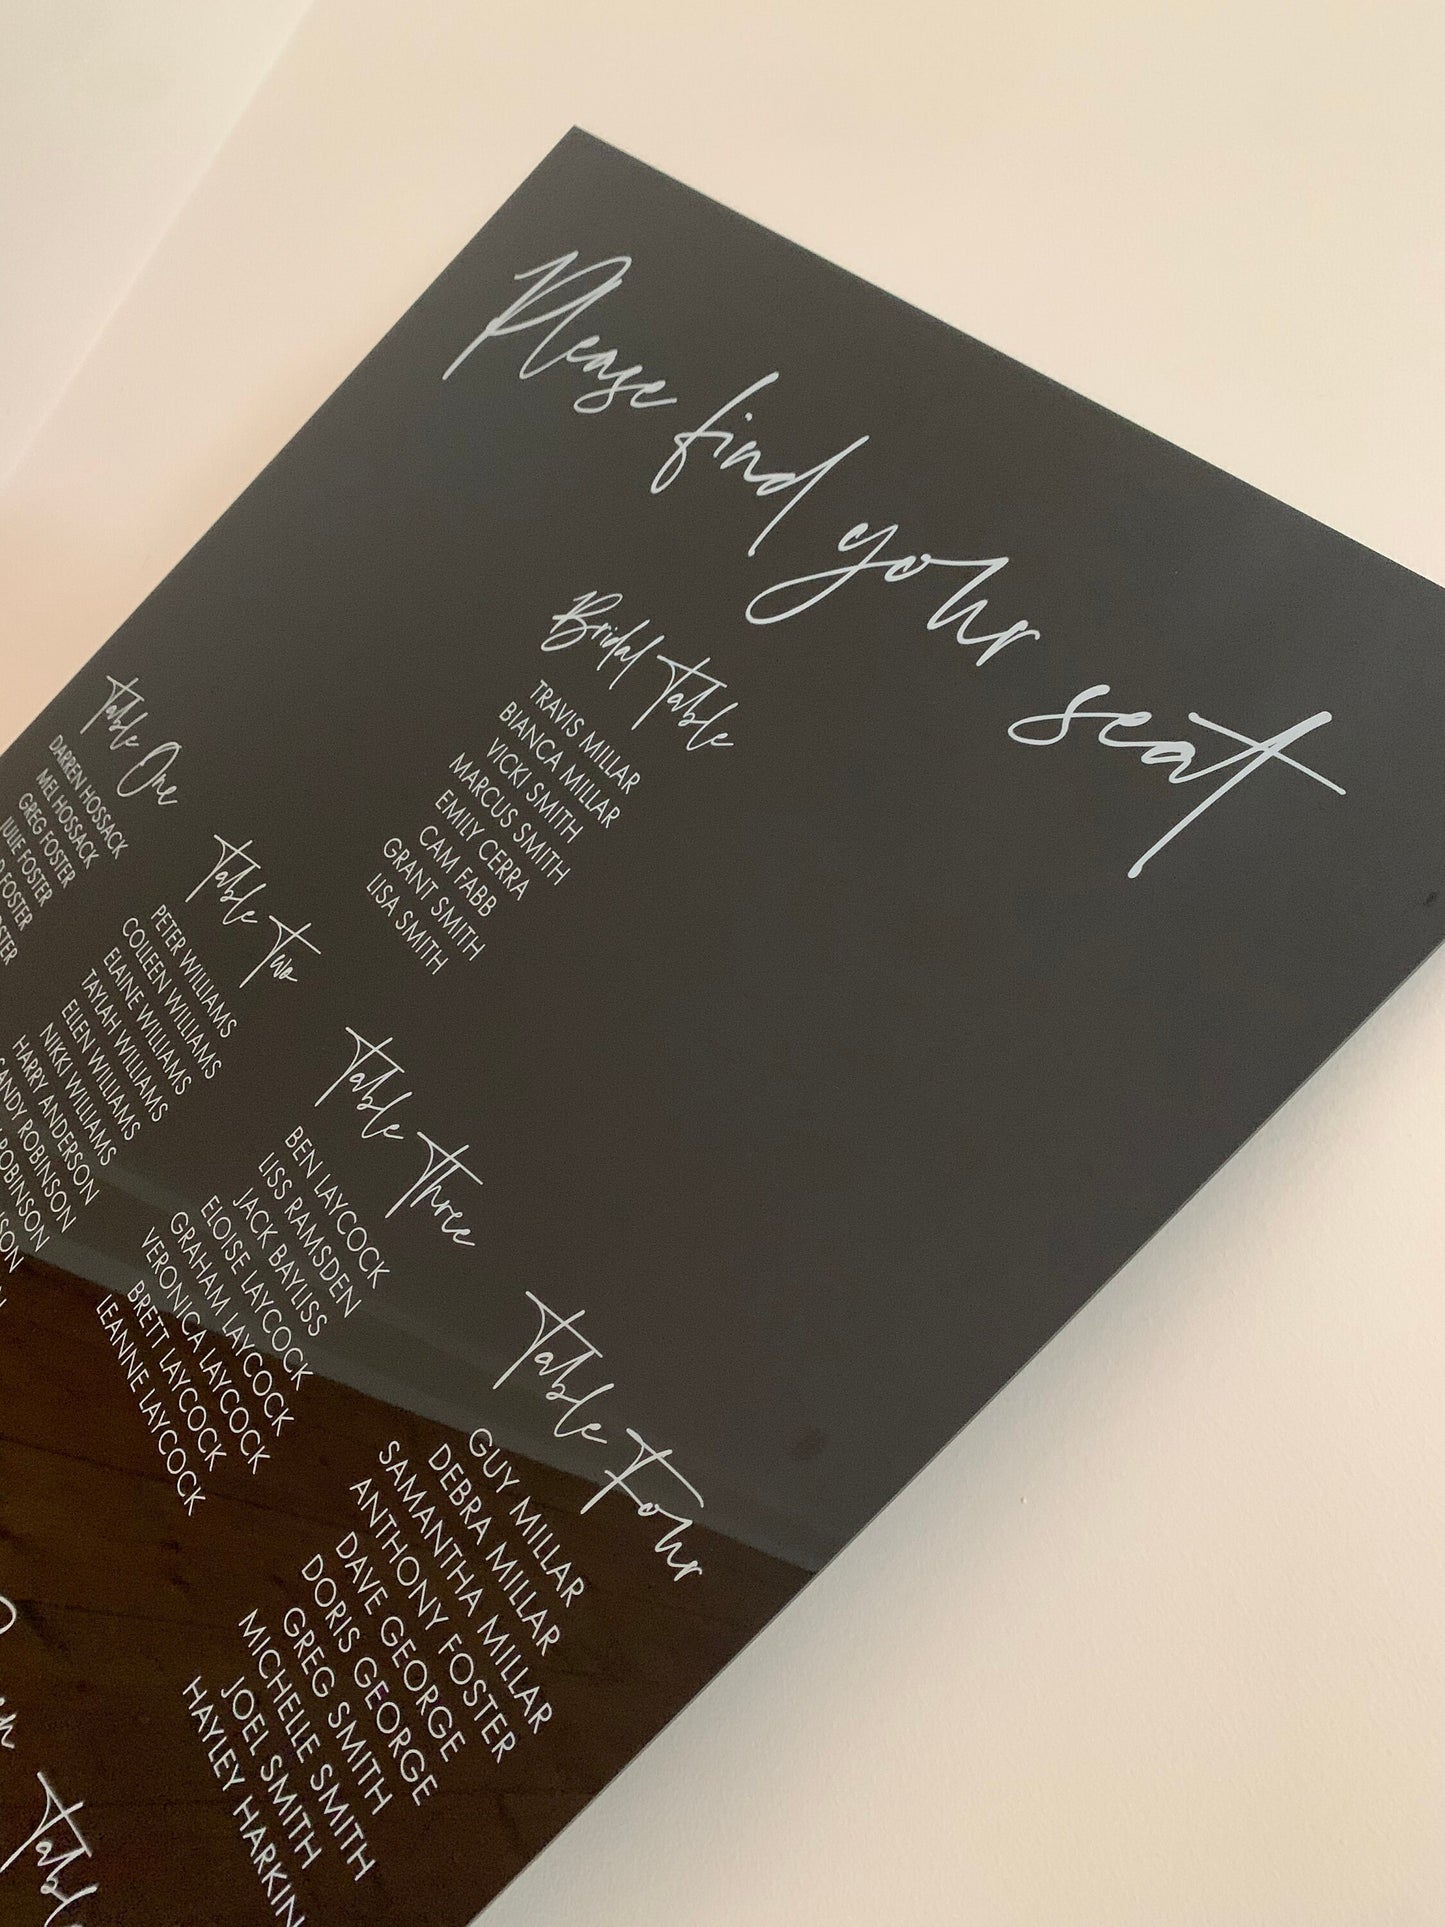 Please find your seat
Bridal Table
TRAVIS MILLAR
BIANCA MILLAR
VICKI SMITH
MARCUS SMITH
EMILY CERRA
CAM FABB
GRANT SMITH
LISA SMITH
Table One
DARREN HOSSACK
MEL HOSSACK
GREG FOSTER
JULIE FOSTER
FOSTER
Table Two
PETER WILLIAMS
COLLEEN WILLIAMS
ELAINE WILLIAMS
TAYLAH WILLIAMS
ELLEN WILLIAMS
NIKKI WILLIAMS
HARRY ANDERSON
ROBINSON
ROBINSON
Table Three
BEN LAYCOCK
LISS RAMSDEN
JACK BAYLISS
ELOISE LAYCOCK
GRAHAM LAYCOCK
VERONICA LAYCOCK
BRETT LAYCOCK
LEANNE LAYCOCK
Table Four
GUY MILLAR
DEBRA MILLAR
SAMANTHA MILLAR
ANTHONY FOSTER
DAVE GEORGE
DORIS GEORGE
GREG SMITH
MICHELLE SMITH
JOEL SMITH
HAYLEY HARKIN
Table